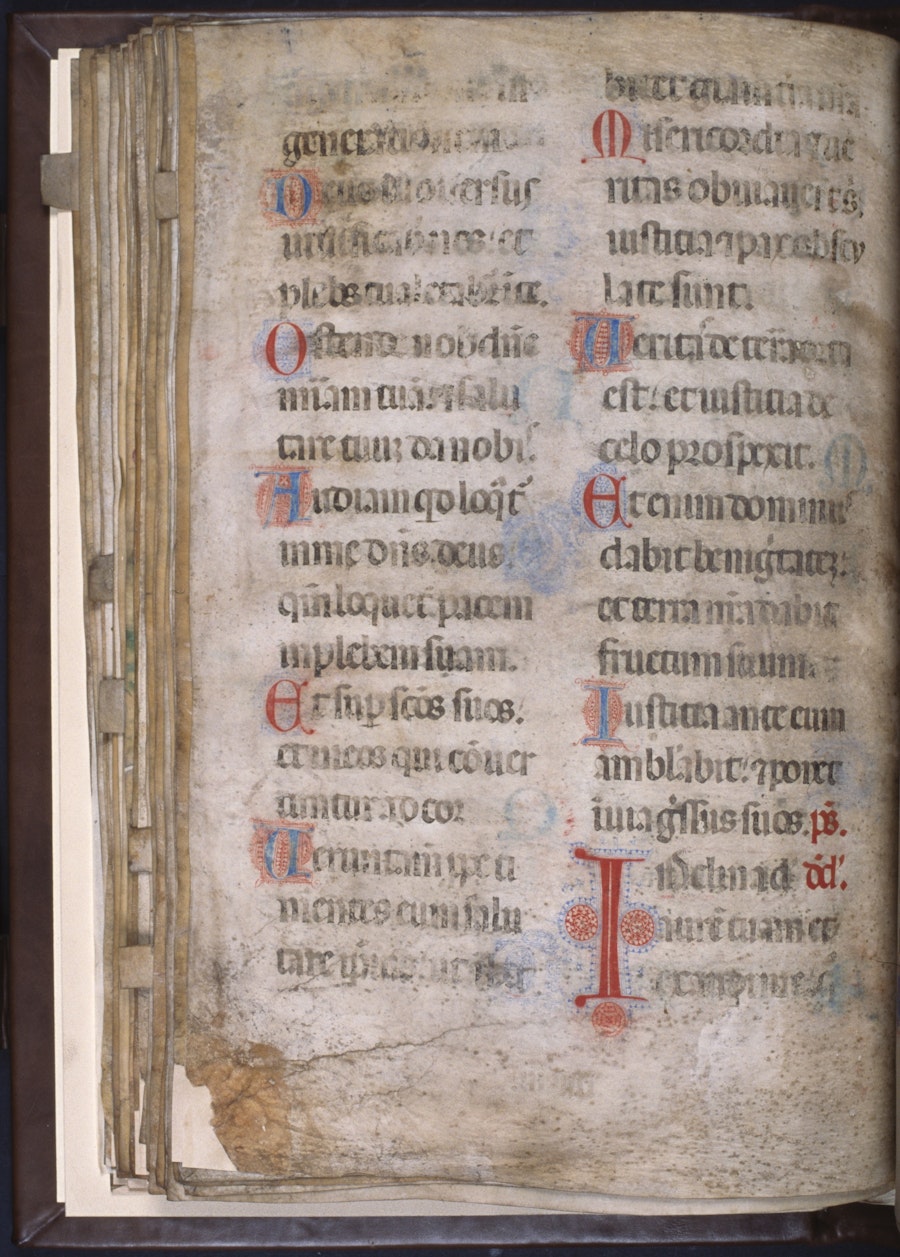 generatione
Deus tu conversus
vivificabis nos: et
plebs tua letabit̃ in te.
Ostende nobis dñe
mĩam tuã: et salu
tare tuuʒ da nobis.
Audiam qͥd loqͣt̃
in me dñs deus:
qm̃ loquet̃ pacem
in plebem suam.
Et suꝑ sc̃os suos:
et in eos qui cõuer
tuntur ad cor
Veruntamen ꝓpe ti
mentes eum salu
tare ipsius: ut
bitet gloria in
Misericordia et ue
ritas obuiauer̃t s̃:
iusticia ⁊ pax obscu
late sunt.
Ueritas de terra orta
est: et iusticia de
celo prospexit.
Et enim dominus
dabit benigͥtateʒ:
et terra nr̃a dabit
fructum suum.
Iusticia ante eum
amblabit: ⁊ ponet
ĩ uia gͥssus suos. ps̃.
Inclina dñe dd̃.
aurẽ tuam et
exaudi me